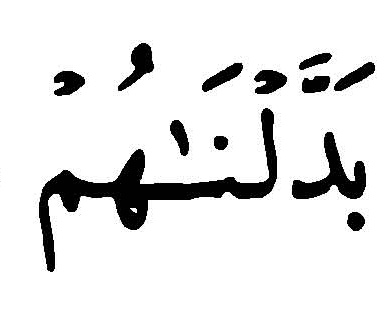 بَدَّلْنَـٰهُمْ